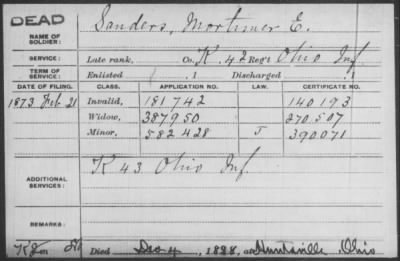 DEAD
NAME OF SOLDIER: Sanders, Mortimer E.
SERVICE: Late rank, Co. K. 42 Reg't Ohio Inf
TERM OF SERVICE: Enlisted , 1 Discharged , 1
DATE OF FILING. CLASS. APPLICATION NO. LAW. CERTIFICATE NO.
1873 Feb 21 Invalid, 181742 140193
Widow, 387950 270507
Minor, 582428 J 390071
ADDITIONAL SERVICES: K 43 Ohio Inf.
REMARKS:
Died Dec 4, 1888, at Huntsville, Ohio